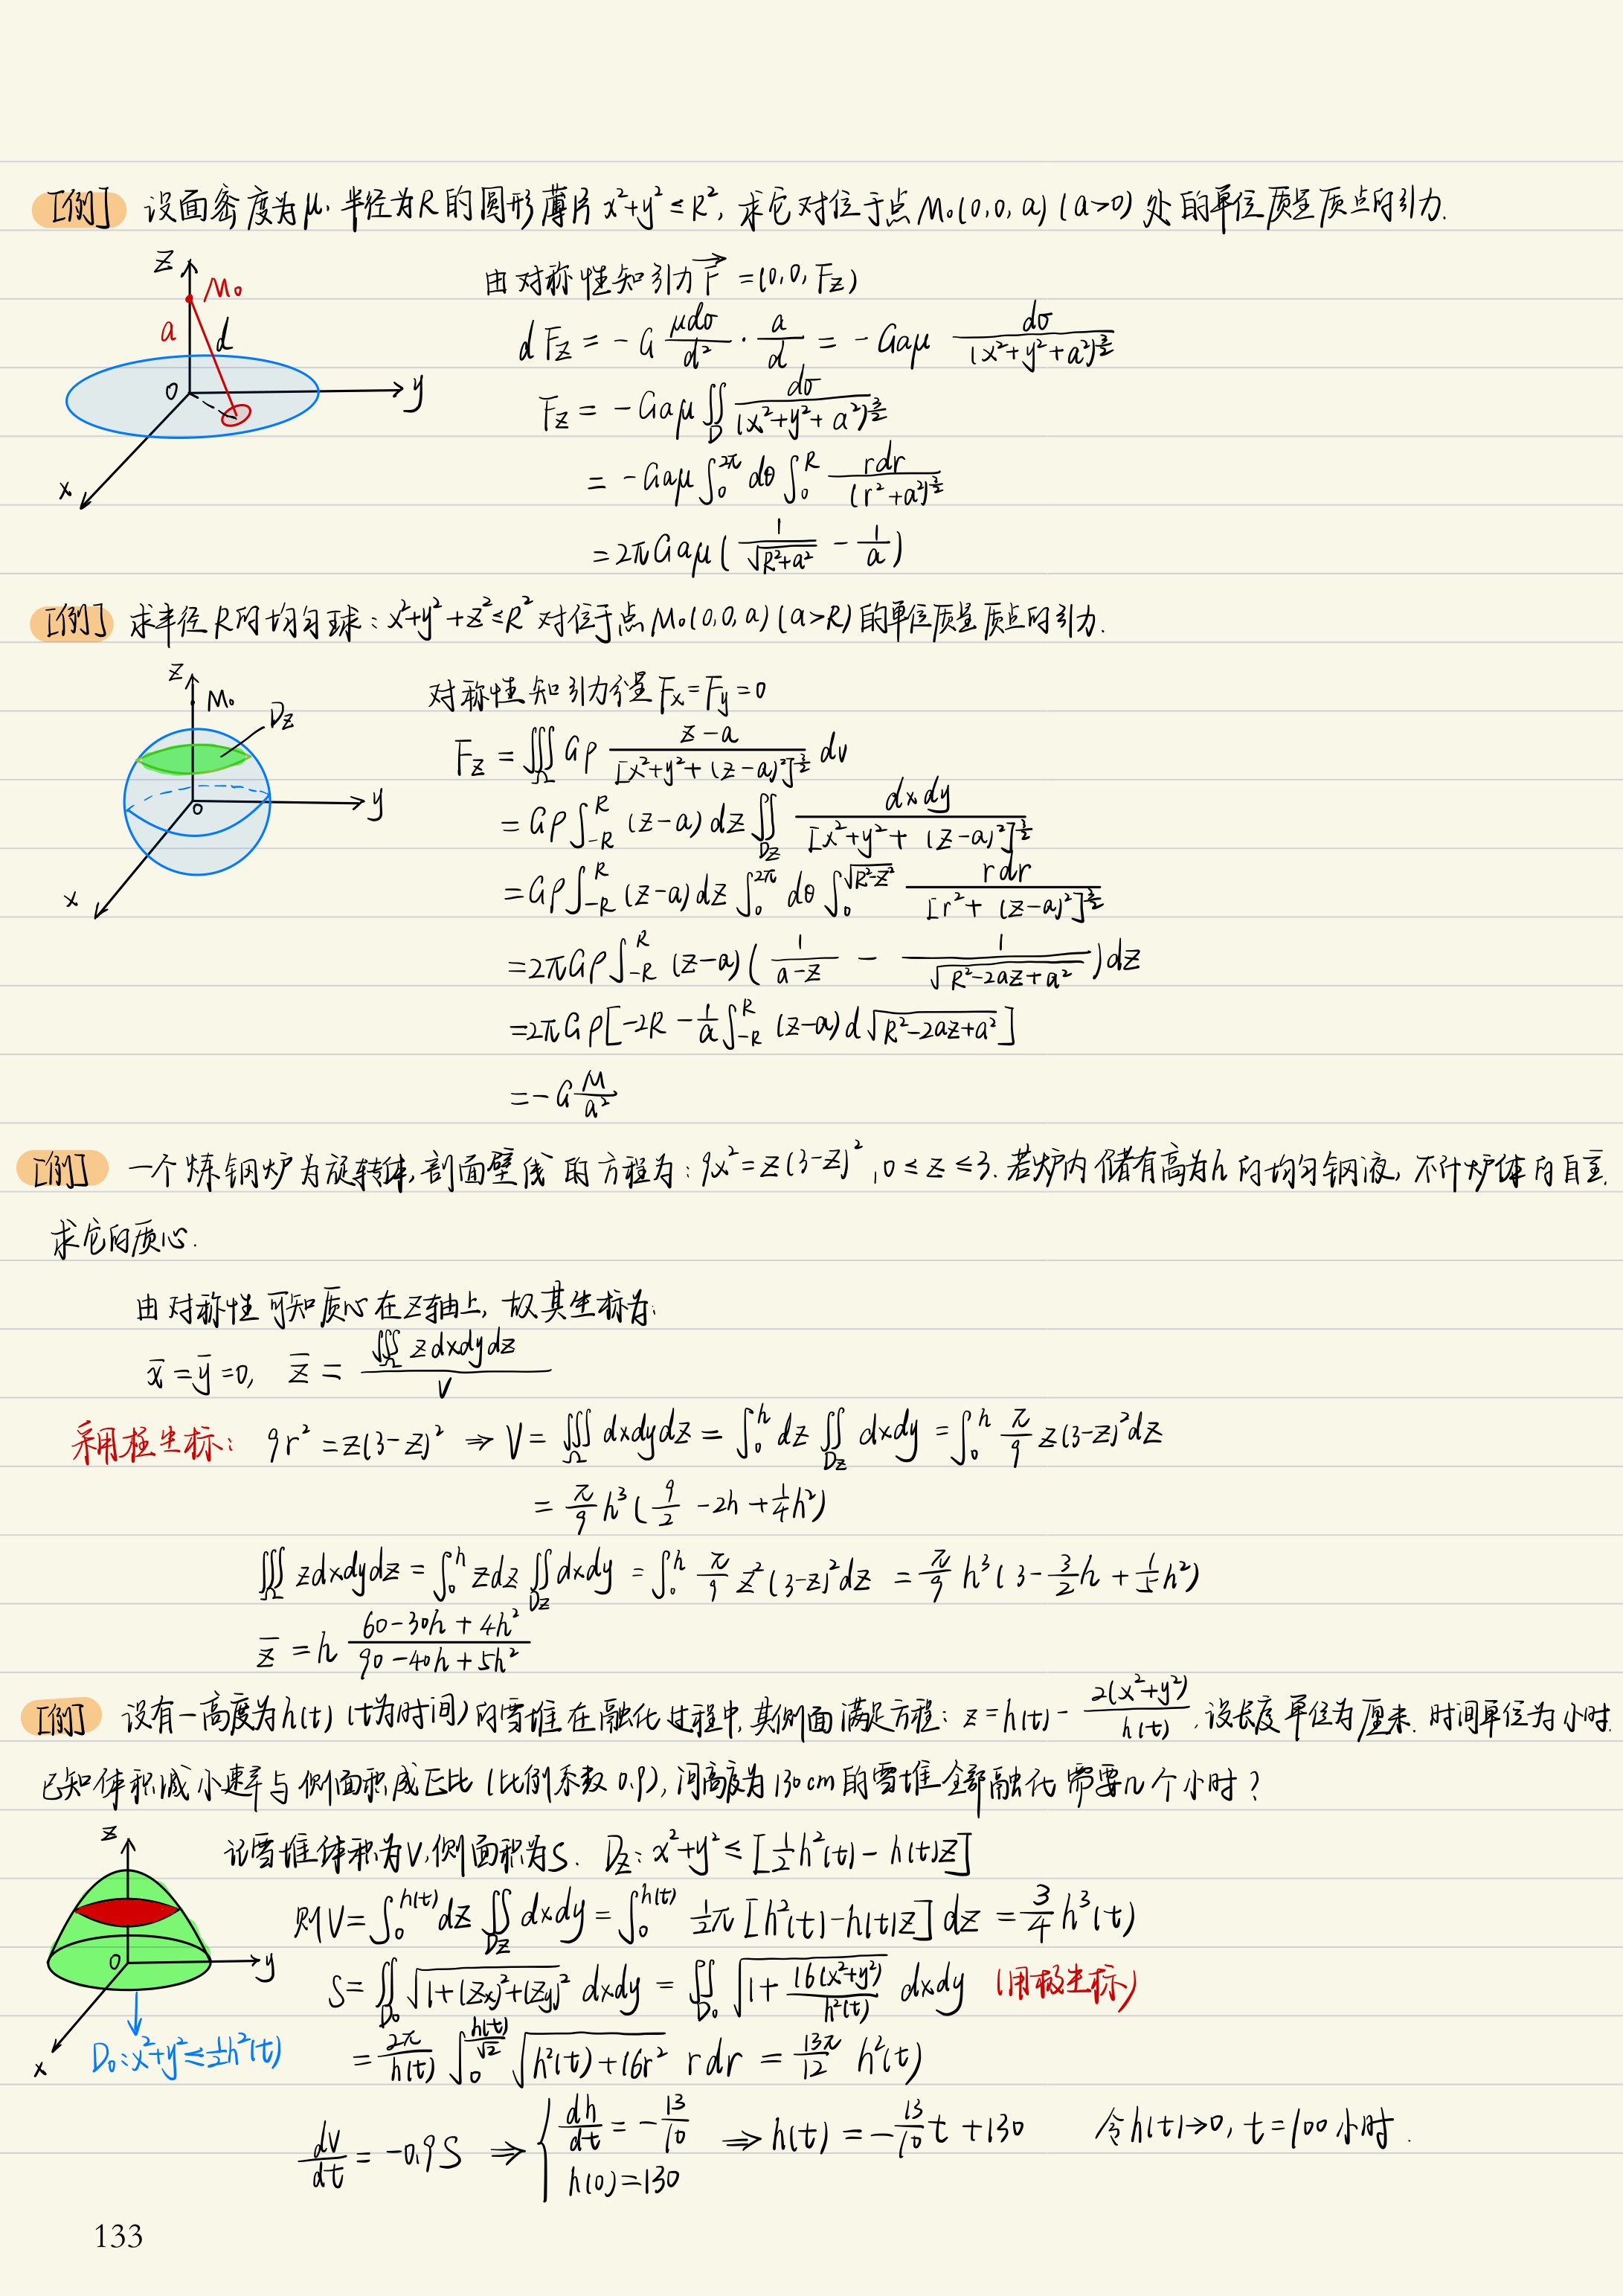 [例] 设面密度为μ, 半径为R的圆形薄片 x²+y² ≤ R², 求它对位于点 M₀(0,0,a) (a>0) 处的单位质量质点的引力.
z
M₀
a
d
O
y
x
由对称性知引力 F⃗ = (0,0,Fz)
dFz = -G μdσ/d² · a/d = -Gaμ dσ/(x²+y²+a²)^(3/2)
Fz = -Gaμ ∬_D dσ/(x²+y²+a²)^(3/2)
= -Gaμ ∫₀^2π dθ ∫₀^R rdr/(r²+a²)^(3/2)
= 2πGaμ ( 1/√(R²+a²) - 1/a )
[例] 求半径R的均匀球: x²+y²+z² ≤ R² 对位于点 M₀(0,0,a) (a>R) 的单位质量质点的引力.
z
M₀
Dz
O
y
x
对称性知引力分量 Fx = Fy = 0
Fz = ∭_Ω Gρ (z-a)/[x²+y²+(z-a)²]^(3/2) dv
= Gρ ∫_-R^R (z-a) dz ∬_Dz dxdy/[x²+y²+(z-a)²]^(3/2)
= Gρ ∫_-R^R (z-a) dz ∫₀^2π dθ ∫₀^√(R²-z²) rdr/[r²+(z-a)²]^(3/2)
= 2πGρ ∫_-R^R (z-a) ( 1/(a-z) - 1/√(R²-2az+a²) ) dz
= 2πGρ [ -2R - 1/a ∫_-R^R (z-a) d√(R²-2az+a²) ]
= -G M/a²
[例] 一个炼钢炉为旋转体, 剖面壁线的方程为: 9x² = z(3-z)², 0 ≤ z ≤ 3. 若炉内储有高为h的均匀钢液, 不计炉体的自重.
求它的质心.
由对称性可知质心在z轴上, 故其坐标为:
x̄ = ȳ = 0, z̄ = ∭_Ω zdxdydz / V
采用极坐标: 9r² = z(3-z)² ⇒ V = ∭_Ω dxdydz = ∫₀^h dz ∬_Dz dxdy = ∫₀^h π/9 z(3-z)² dz
= π/9 h³ ( 9/2 - 2h + 1/4 h² )
∭_Ω zdxdydz = ∫₀^h zdz ∬_Dz dxdy = ∫₀^h π/9 z²(3-z)² dz = π/9 h³ ( 3 - 3/2 h + 1/5 h² )
z̄ = h (60-30h+4h²)/(90-40h+5h²)
[例] 设有一高度为h(t) (t为时间) 的雪堆在融化过程中, 其侧面满足方程: z = h(t) - 2(x²+y²)/h(t), 设长度单位为厘米. 时间单位为小时.
已知体积减小速率与侧面积成正比 (比例系数 0.9), 问高度为130cm的雪堆全部融化需要几个小时?
z
O
y
x
D₀: x²+y² ≤ 1/2 h²(t)
记雪堆体积为V, 侧面积为S. Dz: x²+y² ≤ [ 1/2 h²(t) - h(t)z ]
则 V = ∫₀^h(t) dz ∬_Dz dxdy = ∫₀^h(t) 1/2 π [h²(t) - h(t)z] dz = 3/4 h³(t)
S = ∬_D₀ √(1+(Zx)²+(Zy)²) dxdy = ∬_D₀ √(1 + 16(x²+y²)/h²(t)) dxdy (用极坐标)
= 2π/h(t) ∫₀^(h(t)/√2) √(h²(t)+16r²) rdr = 13π/12 h²(t)
dv/dt = -0.9S ⇒ { dh/dt = -13/10 ⇒ h(t) = -13/10 t + 130 令h(t)→0, t = 100小时.
h(0) = 130
133